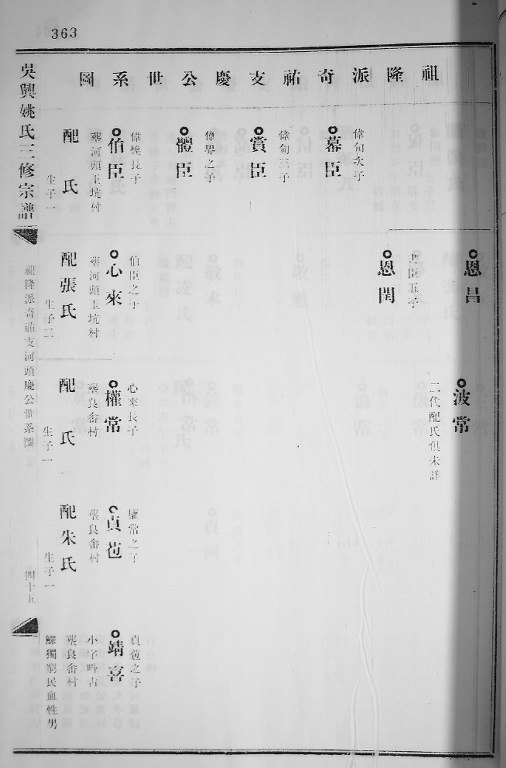 363
祖隆派奇祐支慶公世系圖
恩昌
恩閏
五子
波常
二代配氏俱未詳
幕臣
偉旬次子
賞臣
偉旬三子
體臣
之子
伯臣
長子
葬河頭玉坑村
配氏
生子一
心來
伯臣之子
葬河頭玉坑村
配張氏
生子二
權常
心來長子
葬良畬村
配氏
生子一
貞苞
權常之子
葬良畬村
配朱氏
生子一
靖喜
貞苞之子
小字
葬良畬村
鰥獨窮民血性男
吳興姚氏三修宗譜
祖隆派奇祐支河頭慶公世系圖
四十五